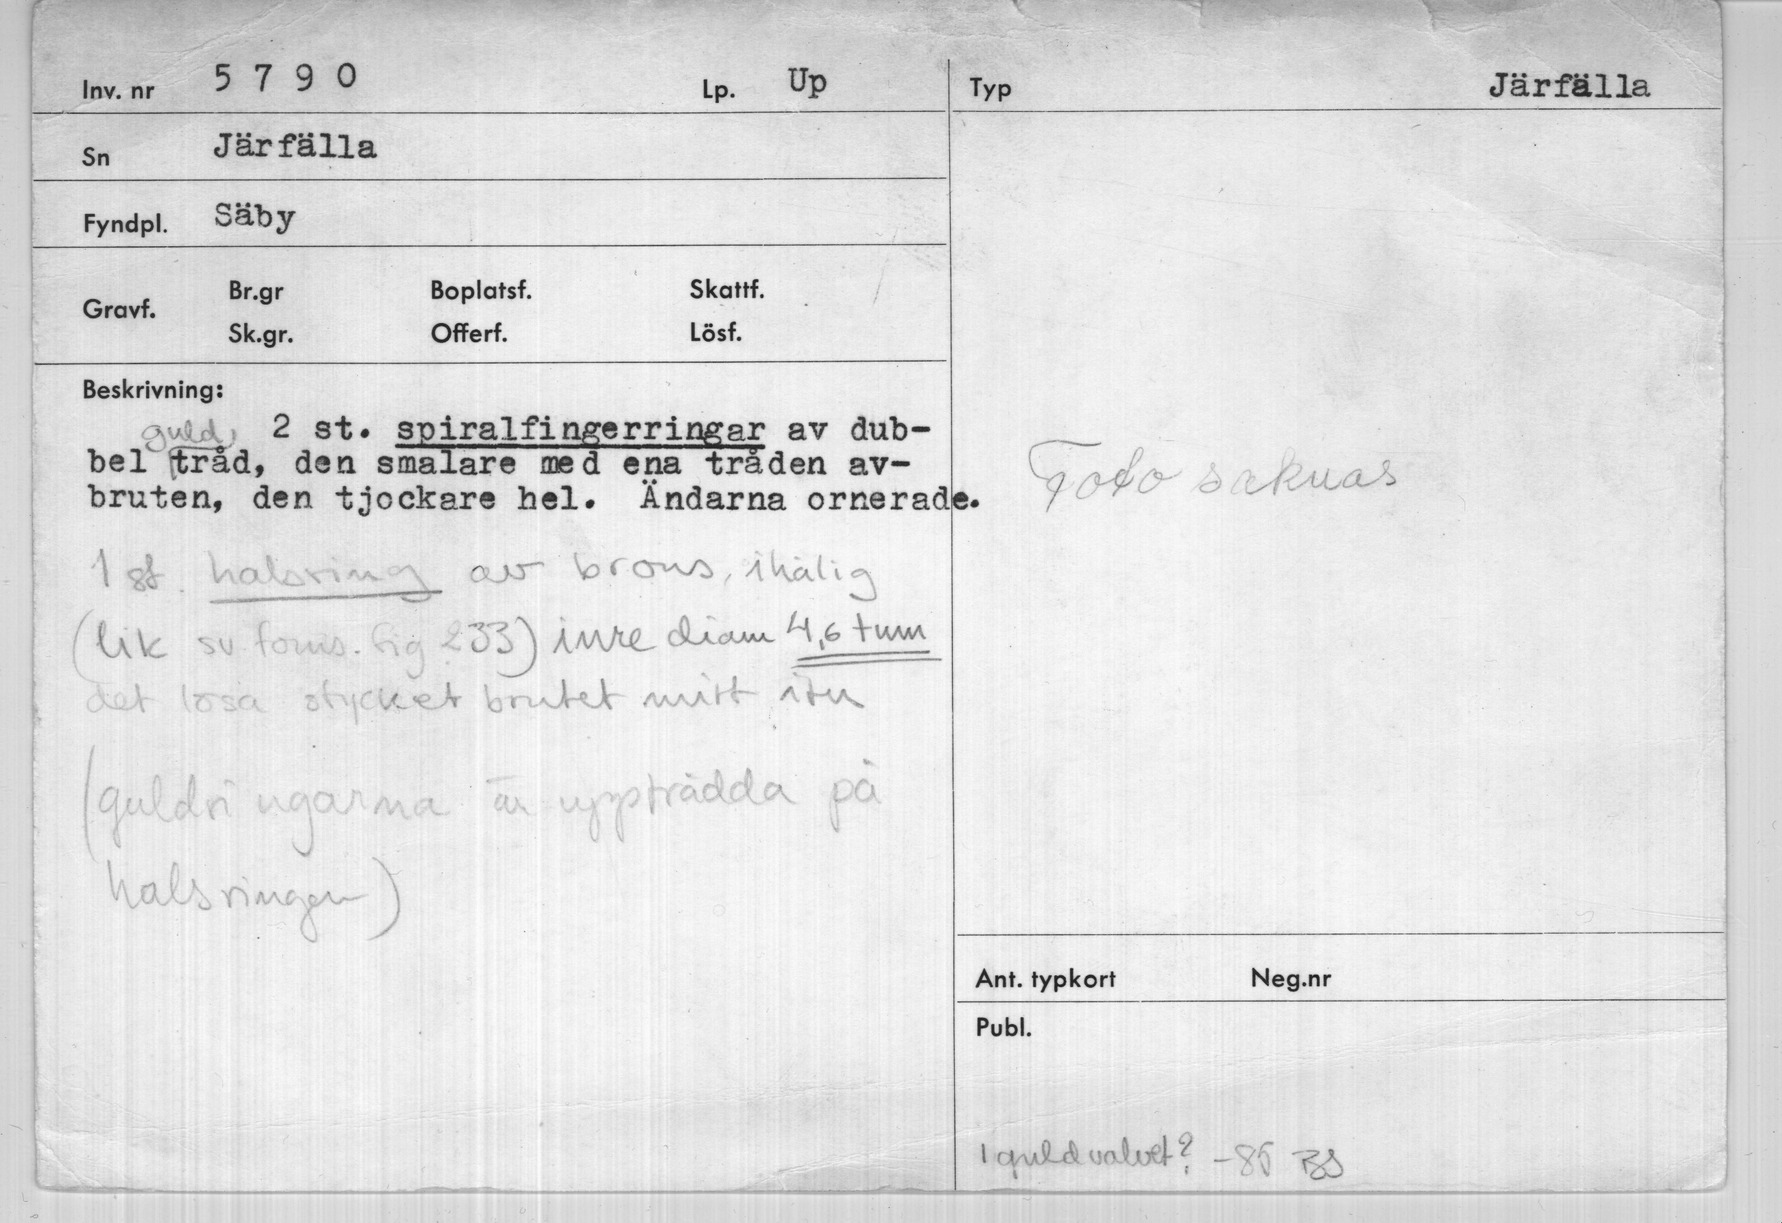 Inv. nr 5 7 9 0 Lp. Up
Sn Järfälla
Fyndpl. Säby
Gravf. Br.gr Boplatsf. Skattf.
Sk.gr. Offerf. Lösf.
Beskrivning:
guld
2 st. spiralfingerringar av dub-
bel tråd, den smalare med ena tråden av-
bruten, den tjockare hel. Ändarna ornerade.
1 st. halsring av brons, ihålig
(lik sv. forns. fig 233) inre diam 4,6 tum
det lösa stycket brutet mitt itu
(guldringarna är uppträdda på
halsringen)
Typ Järfälla
Foto saknas
Ant. typkort Neg.nr
Publ.
I guldvalvet? -85 BS